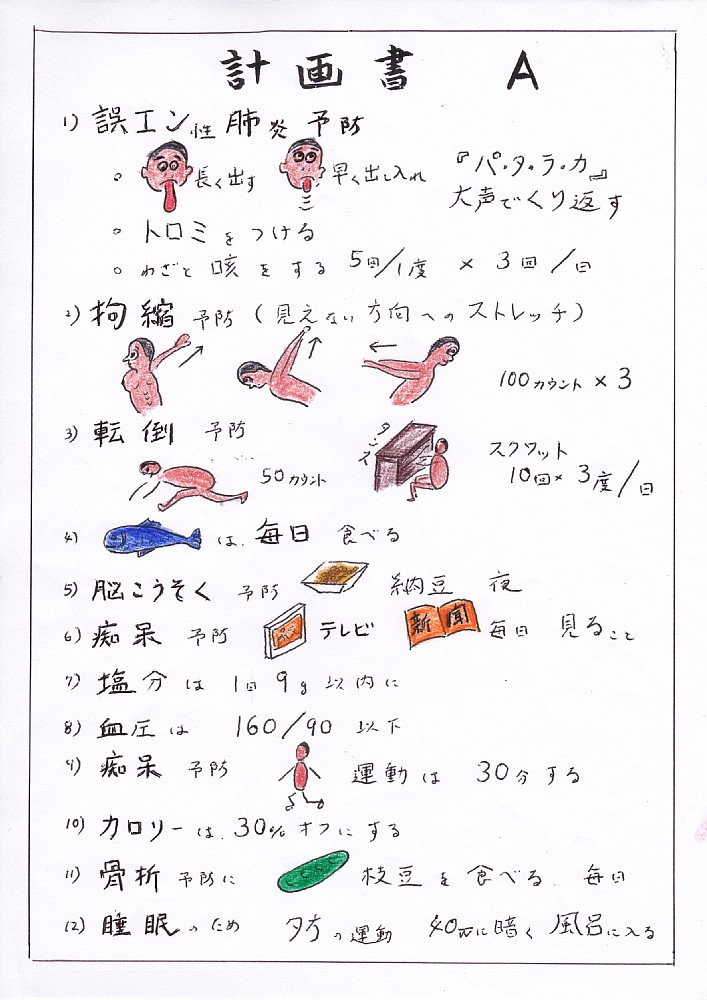 計画書 A
1) 誤エン性肺炎予防
。長く出す 早く出し入れ 『パ・タ・ラ・カ』
大声でくり返す
。トロミをつける
。わざと咳をする 5回/1度 × 3回/日
2) 拘縮予防(見えない方向へのストレッチ)
100カウント × 3
3) 転倒予防
タンス スクワット
50カウント 10回× 3度/日
4) は、毎日食べる
5) 脳こうそく予防 納豆 夜
6) 痴呆予防 テレビ 新聞 毎日見ること
7) 塩分は1日9g以内に
8) 血圧は 160/90 以下
9) 痴呆予防 運動は 30分する
10) カロリーは、30%オフにする
11) 骨折予防に 枝豆を食べる 毎日
12) 睡眠のため 夕方の運動 40Wに暗く 風呂に入る